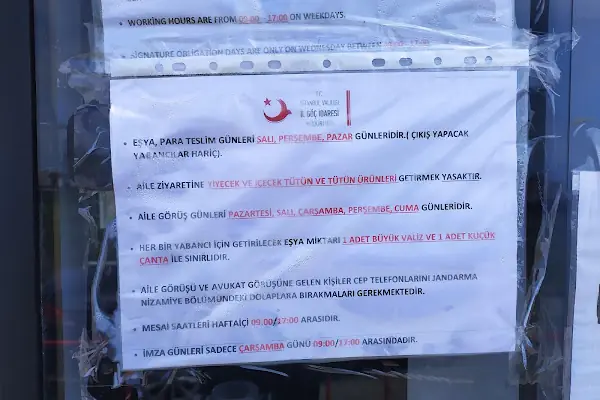 • WORKİNG HOURS ARE FROM 09:00 - 17:00 ON WEEKDAYS.
• SIGNATURE OBLIGATION DAYS ARE ONLY ON WEDNESDAY BETWEEN 09:00 - 17:00
T.C.
İSTANBUL VALİLİĞİ
İL GÖÇ İDARESİ
MÜDÜRLÜĞÜ
• EŞYA, PARA TESLİM GÜNLERİ SALI, PERŞEMBE, PAZAR GÜNLERİDİR.( ÇIKIŞ YAPACAK
YABANCILAR HARİÇ).
• AİLE ZİYARETİNE YİYECEK VE İÇECEK TÜTÜN VE TÜTÜN ÜRÜNLERİ GETİRMEK YASAKTIR.
• AİLE GÖRÜŞ GÜNLERİ PAZARTESİ, SALI, ÇARŞAMBA, PERŞEMBE, CUMA GÜNLERİDİR.
• HER BİR YABANCI İÇİN GETİRİLECEK EŞYA MİKTARI 1 ADET BÜYÜK VALİZ VE 1 ADET KÜÇÜK
ÇANTA İLE SINIRLIDIR.
• AİLE GÖRÜŞÜ VE AVUKAT GÖRÜŞÜNE GELEN KİŞİLER CEP TELEFONLARINI JANDARMA
NİZAMİYE BÖLÜMÜNDEKİ DOLAPLARA BIRAKMALARI GEREKMEKTEDİR.
• MESAİ SAATLERİ HAFTAİÇİ 09:00/17:00 ARASIDIR.
• İMZA GÜNLERİ SADECE ÇARŞAMBA GÜNÜ 09:00/17:00 ARASINDADIR.